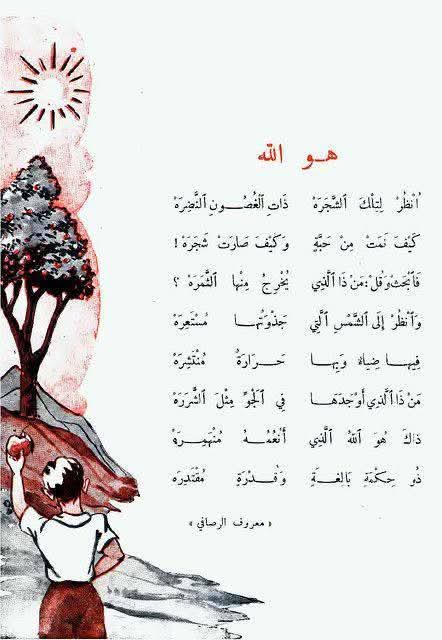 هو الله
اُنْظُرْ لِتِلْكَ ٱلشَّجَرَهْ ذَاتِ ٱلْغُصُونِ ٱلنَّضِرَهْ
كَيْفَ نَمَتْ مِنْ حَبَّةٍ وَكَيْفَ صَارَتْ شَجَرَهْ !
فَٱبْحَثْ وَقُلْ: مَنْ ذَا ٱلَّذِي يُخْرِجُ مِنْها ٱلثَّمَرَهْ ؟
وَٱنْظُرْ إِلَى ٱلشَّمْسِ ٱلَّتِي جَذْوَتُهـا مُسْتَعِرَهْ
فِيهـا ضِيَاءٌ وَبِهـا حَـرَارَةٌ مُنْتَشِرَهْ
مَنْ ذَا ٱلَّذِي أَوْجَدَهَـا فِي ٱلْجَوِّ مِثْلَ ٱلشَّرَرَهْ
ذَاكَ هُوَ ٱللهُ ٱلَّذِي أَنْعُمُـهُ مُنْهَمِـرَهْ
ذُو حِكْمَةٍ بَالِغَـةٍ وَقُـدْرَةٍ مُقْتَدِرَهْ
« معروف الرصافي »